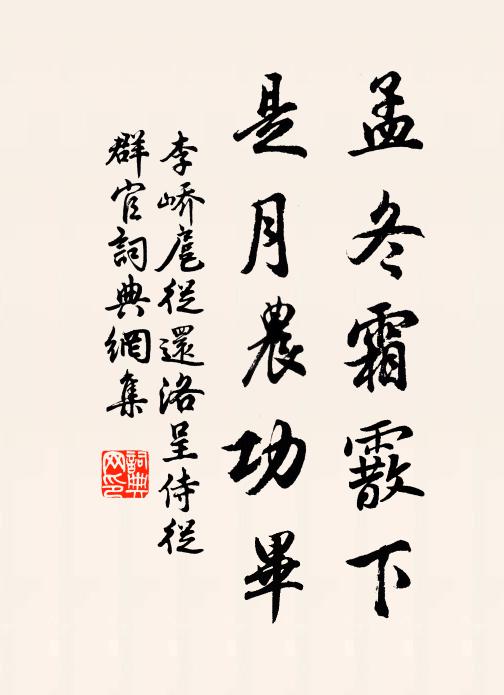 孟冬霜霰下
是月農功畢
李嶠扈從還洛呈侍從
群官詞典網集
詞典
网印